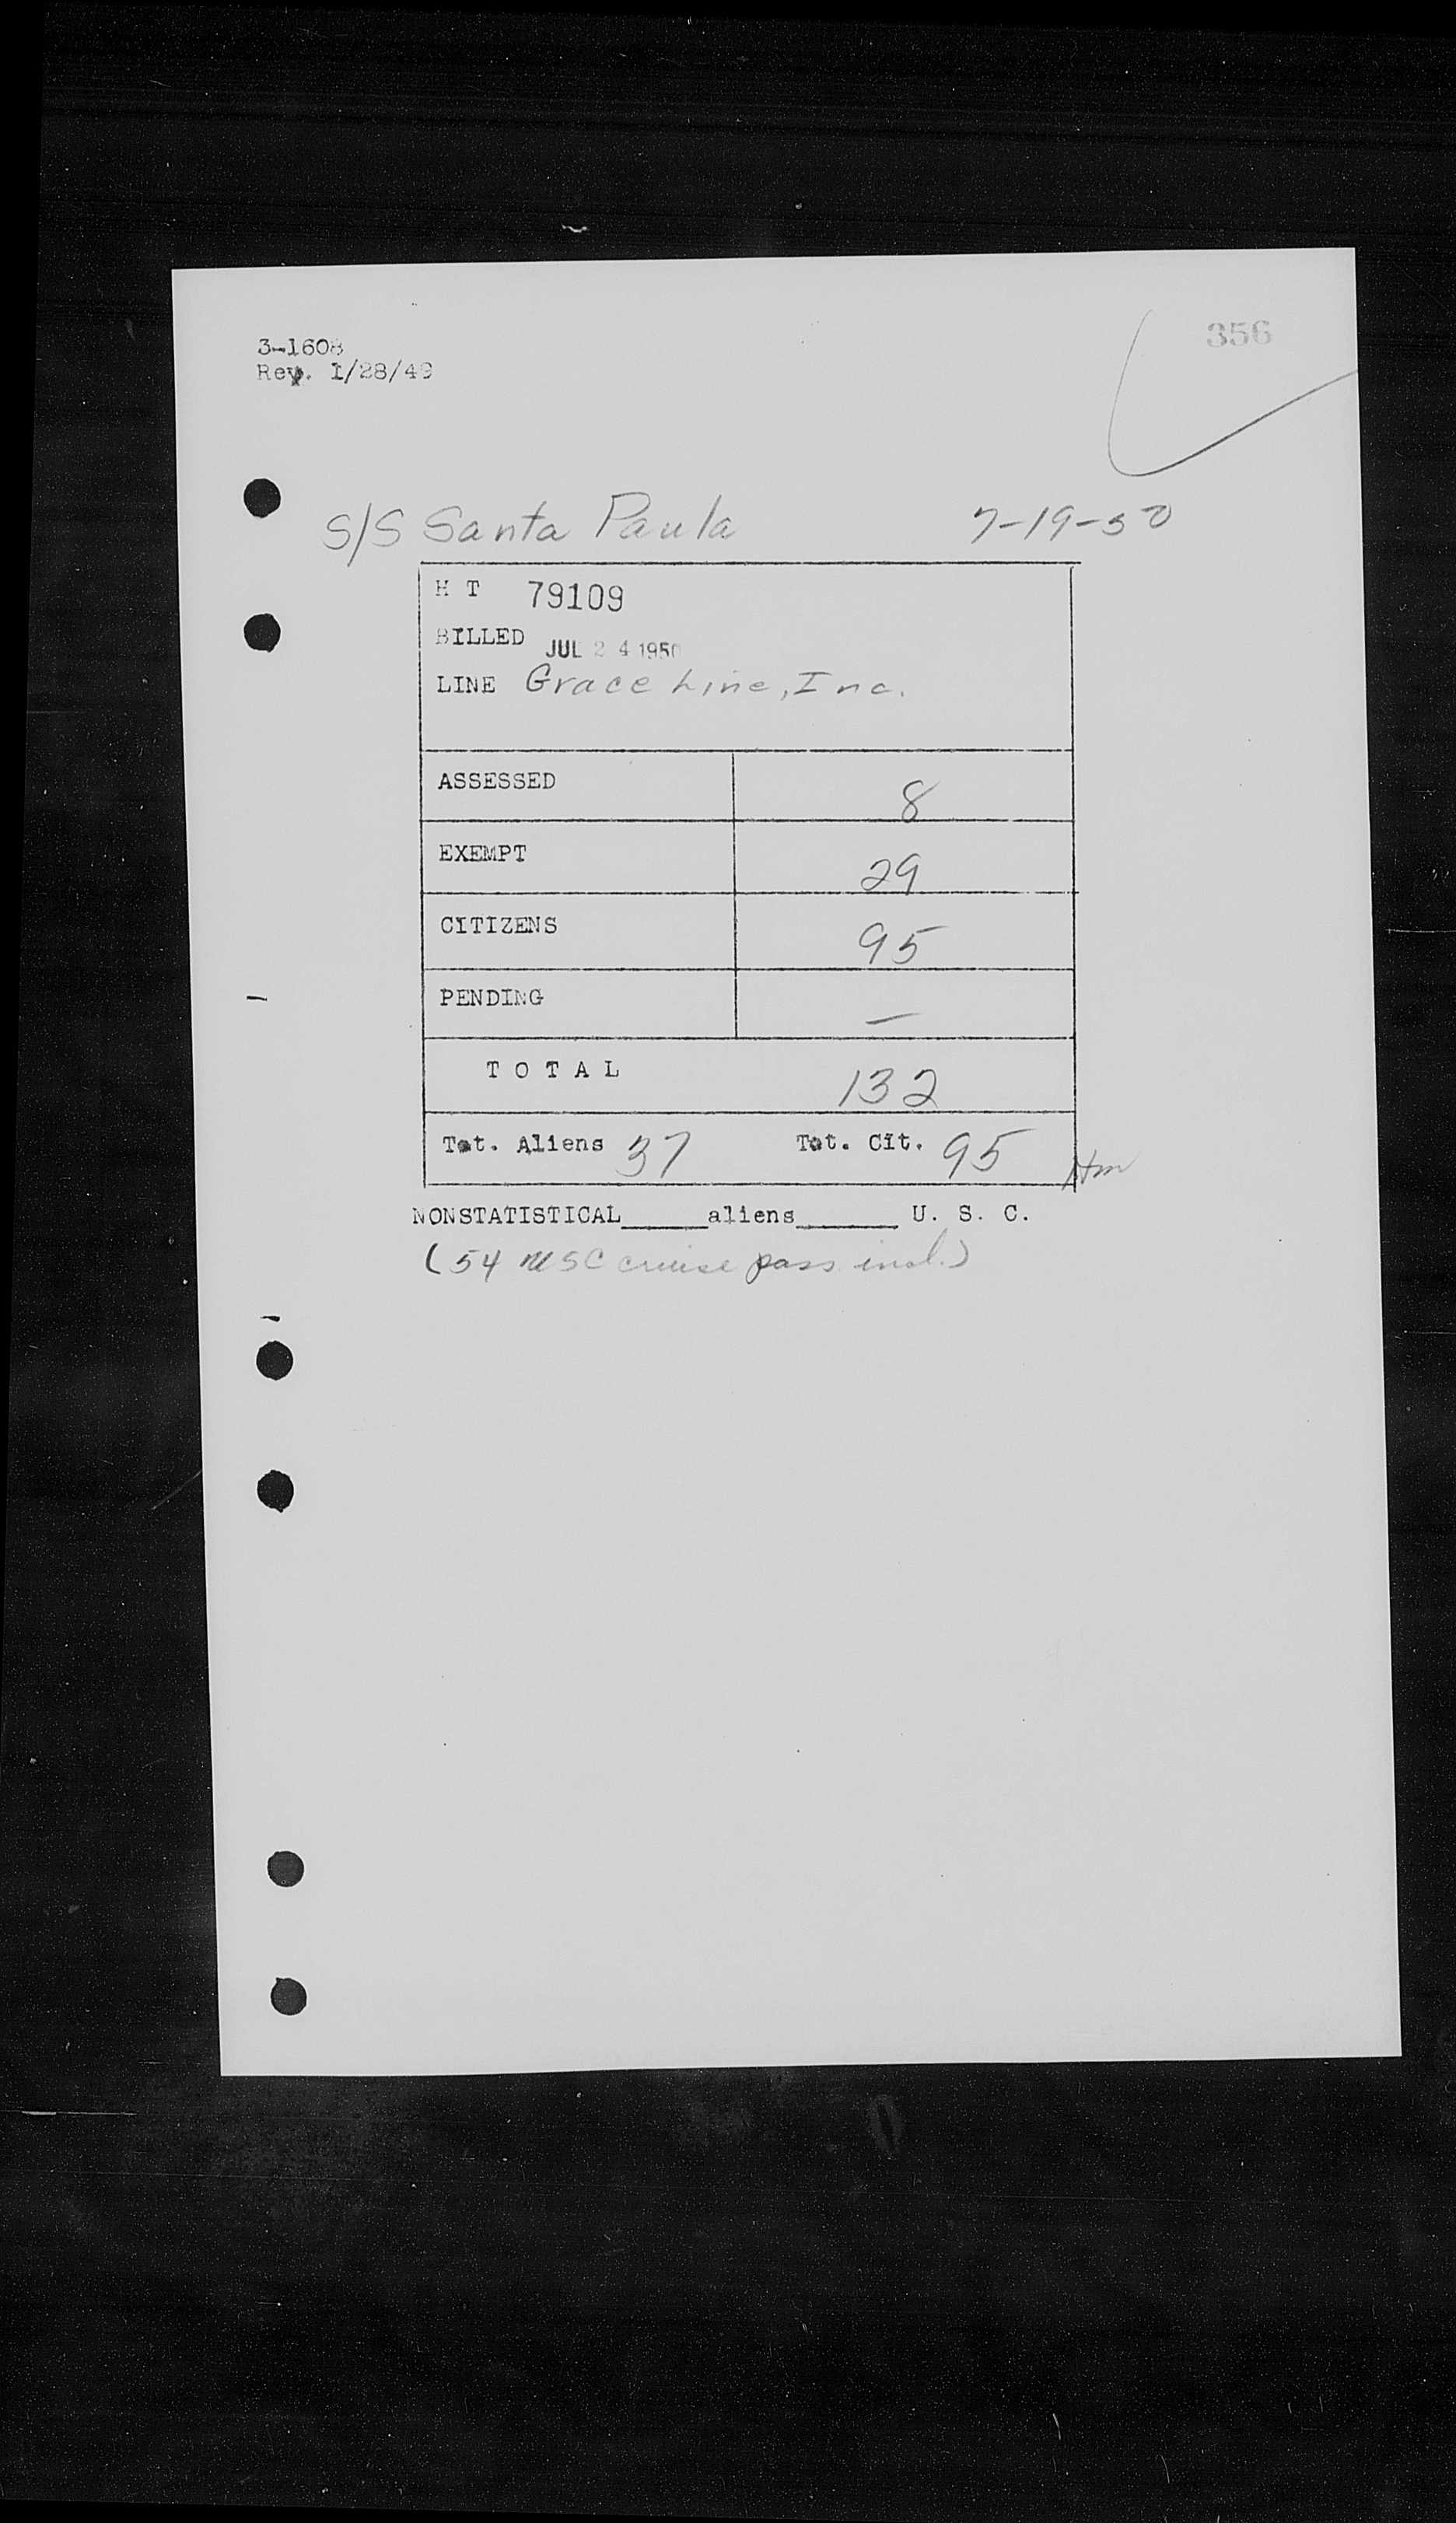 356
3-1608
Rev. 1/28/49
S/S Santa Paula 7-19-50
H T 79109
BILLED JUL 24 1950
LINE Grace Line, Inc.
ASSESSED 8
EXEMPT 29
CITIZENS 95
PENDING —
T O T A L 132
Tot. Aliens 37 Tot. Cit. 95
NONSTATISTICAL_____aliens______ U. S. C.
(54 USC cruise pass incl.)